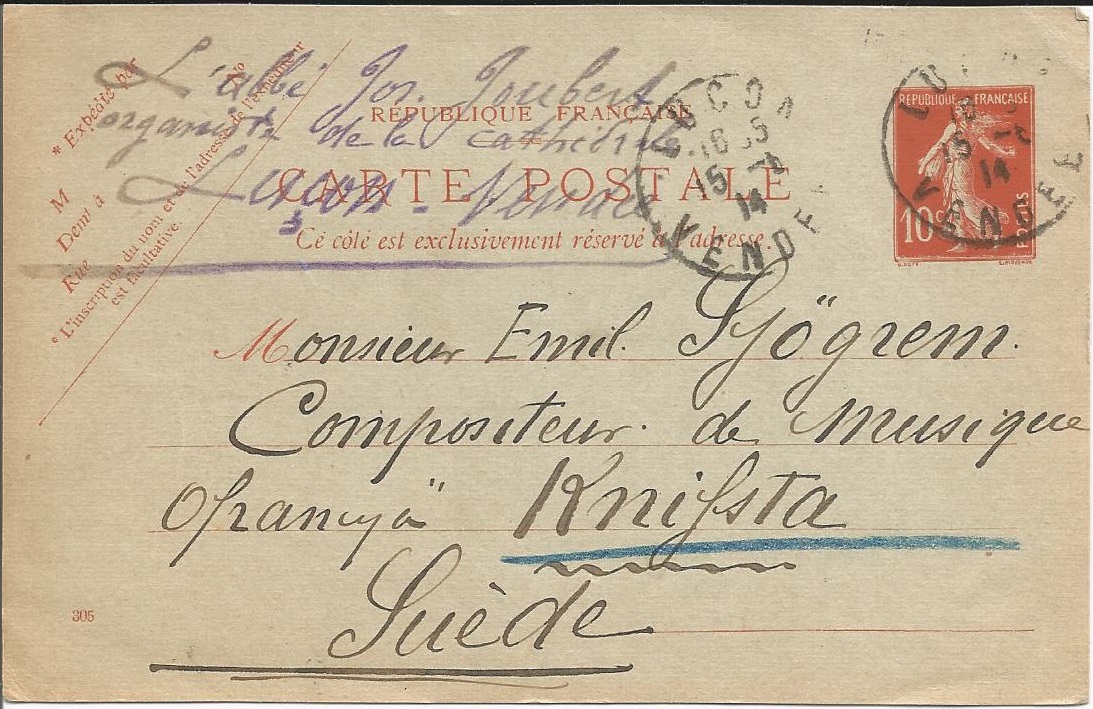 L'abbé Jos. Joubert
organiste de la cathédrale
Luçon - Vendée
* Expédié par
M
Demt à
Rue
No
* L'inscription du nom et de l'adresse de l'expéditeur
est facultative.
RÉPUBLIQUE FRANÇAISE
CARTE POSTALE
Ce côté est exclusivement réservé à l'adresse.
LUCON
15 -6
14
VENDEE
REPUBLIQUE FRANÇAISE
10c POSTES
VENDEE
Monsieur Emil. Sjögrem.
Compositeur. de Musique
Knifsta
Suède
305